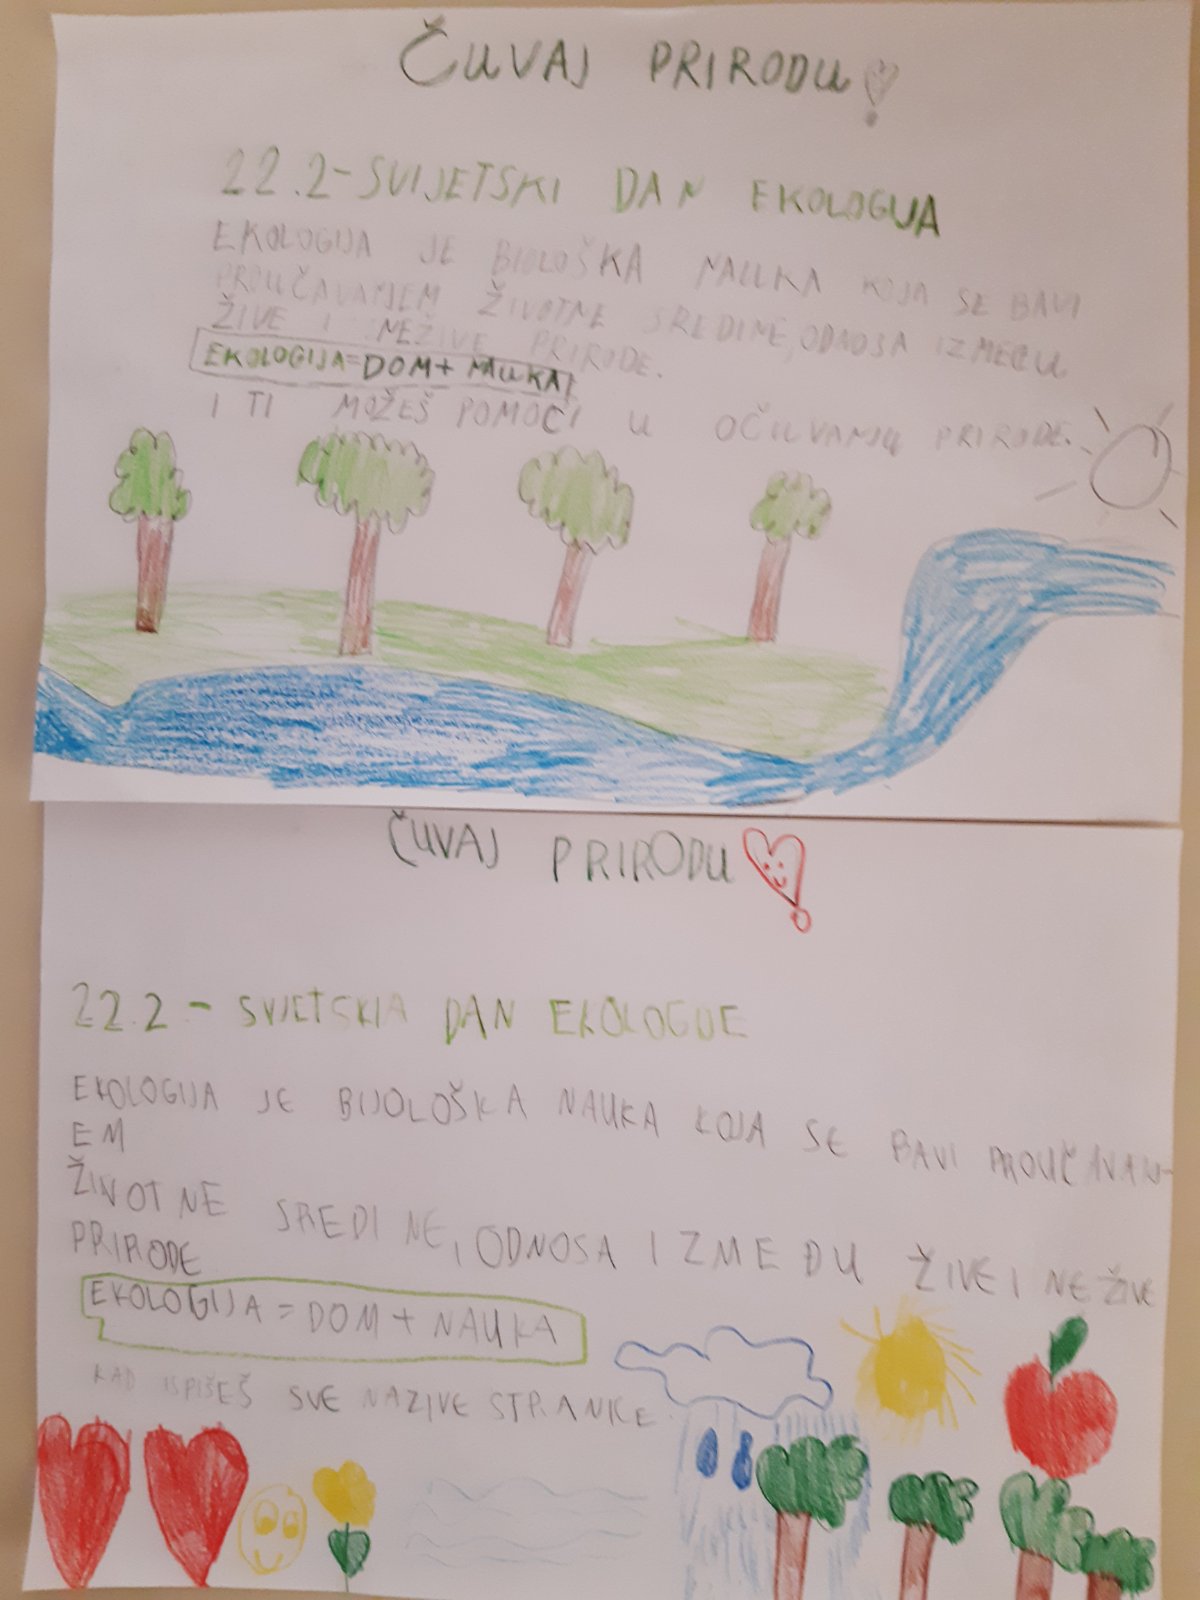 ČUVAJ PRIRODU!
22.2-SVIJETSKI DAN EKOLOGIJA
EKOLOGIJA JE BIOLOŠKA NAUKA KOJA SE BAVI
PROUČAVANJEM ŽIVOTNE SREDINE, ODNOSA IZMEĐU
ŽIVE I NEŽIVE PRIRODE.
EKOLOGIJA=DOM+NAUKA
I TI MOŽEŠ POMOĆI U OČUVANJU PRIRODE.
ČUVAJ PRIRODU!
22.2 - SVJETSKIA DAN EKOLOGDE
EKOLOGIJA JE BIJOLOŠKA NAUKA KOJA SE BAVI PROUČAVAN-
EM
ŽIVOTNE SREDINE, ODNOSA IZMEĐU ŽIVE I NEŽIVE
PRIRODE
EKOLOGIJA = DOM + NAUKA
KAD ISPIŠEŠ SVE NAZIVE STRANKE